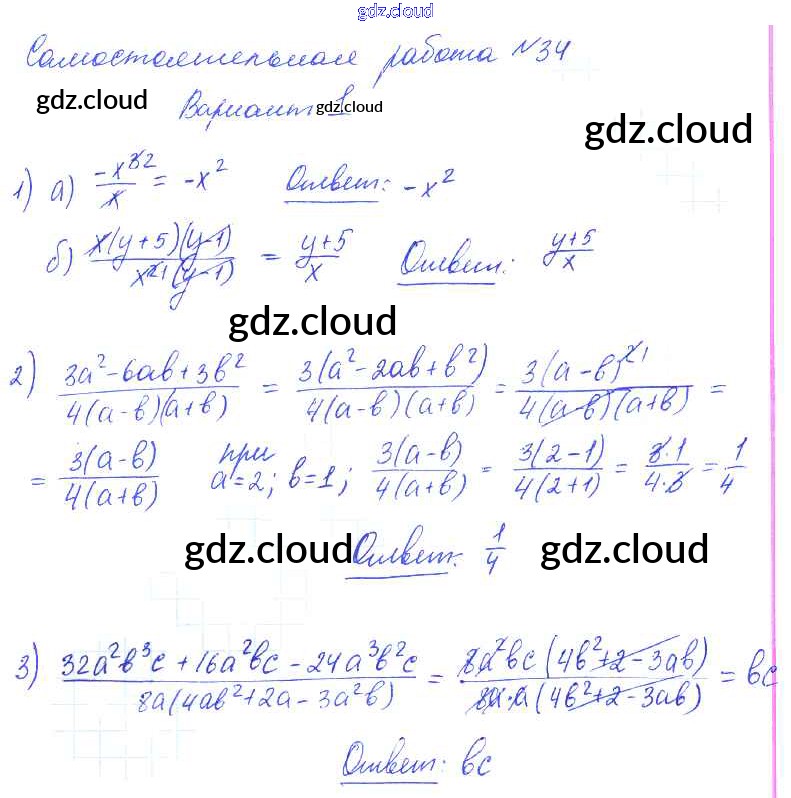 gdz.cloud
Самостоятельная работа №34
gdz.cloud Вариант 1 gdz.cloud
gdz.cloud
1) а) -x^3 2 / x = -x² Ответ: -x²
б) x(y+5)(y-1) / x² 1 (y-1) = y+5 / x Ответ: y+5 / x
gdz.cloud
2) 3a²-6ab+3b² / 4(a-b)(a+b) = 3(a²-2ab+b²) / 4(a-b)(a+b) = 3(a-b)^2 1 / 4(a-b)(a+b) =
= 3(a-b) / 4(a+b) при a=2; b=1; 3(a-b) / 4(a+b) = 3(2-1) / 4(2+1) = 3·1 / 4·3 = 1/4
gdz.cloud Ответ: 1/4 gdz.cloud
3) 32a²b³c+16a²bc-24a³b²c / 8a(4ab²+2a-3a²b) = 8a²bc(4b²+2-3ab) / 8a·a(4b²+2-3ab) = bc
Ответ: bc